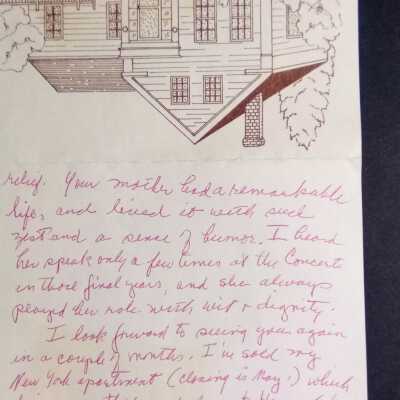 relief. Your mother had a remarkable
life, and lived it with such
zest and a sense of humor. I heard
her speak only a few times at the Concert
in those final years, and she always
played her role with wit + dignity.
I look forward to seeing you again
in a couple of months. I've sold my
New York apartment (closing is May 1) which